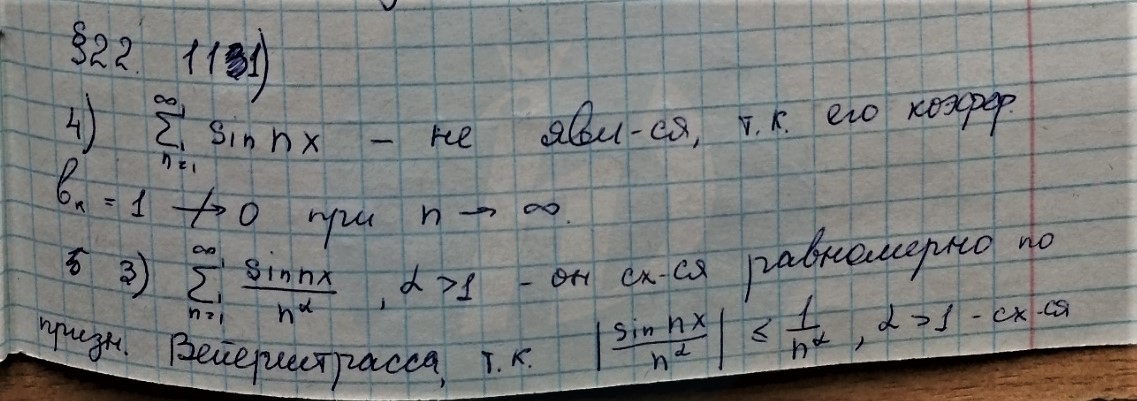 §22. 1131)
4) ∞ ∑ n=1 sin nx – не явл-ся, т.к. его коэфф.
bₙ = 1 ↛ 0 при n → ∞.
3) ∞ ∑ n=1 sin nx / n^α , α > 1 - он сх-ся равномерно по
призн. Вейерштрасса, т.к. | sin nx / n^α | ≤ 1 / n^α , α > 1 - сх-ся